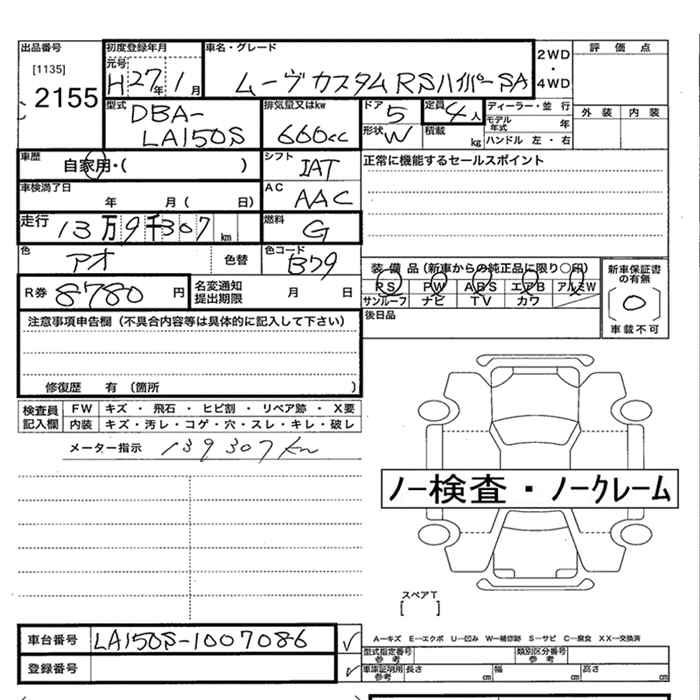 出品番号
[1135]
2155
初度登録年月
元号
H27年1月
車名・グレード
ムーヴカスタムRSハイパーSA
2WD
・
4WD
評価点
外装 内装
型式
DBA-
LA150S
排気量又はkw
660cc
ドア 5
形状 W
定員 4人
積載 kg
ディーラー・並行
モデル年式 年
ハンドル 左・右
車歴
自家用・( )
シフト
IAT
正常に機能するセールスポイント
車検満了日
年 月( 日)
AC
AAC
走行 13万9千307km
燃料
G
色 アオ 色替
色コード
B79
装備品(新車からの純正品に限り○印)
PS PW ABS エアB アルミW
サンルーフ ナビ TV カワ
新車保証書の有無
[○]
車載不可
R券 8780円
名変通知
提出期限 月 日
後日品
注意事項申告欄(不具合内容等は具体的に記入して下さい)
修復歴 有(箇所 )
検査員
記入欄
FW キズ・飛石・ヒビ割・リペア跡・X要
内装 キズ・汚レ・コゲ・穴・スレ・キレ・破レ
メーター指示 139307km
ノー検査・ノークレーム
スペアT
[ ]
車台番号 LA150S-1007086 ✓
登録番号 ✓
A―キズ E―エクボ U―凹み W―補修跡 S―サビ C―腐食 XX―交換済
型式指定番号
参考
類別区分番号
参考
車庫証明用
参考
長さ cm 幅 cm 高さ cm